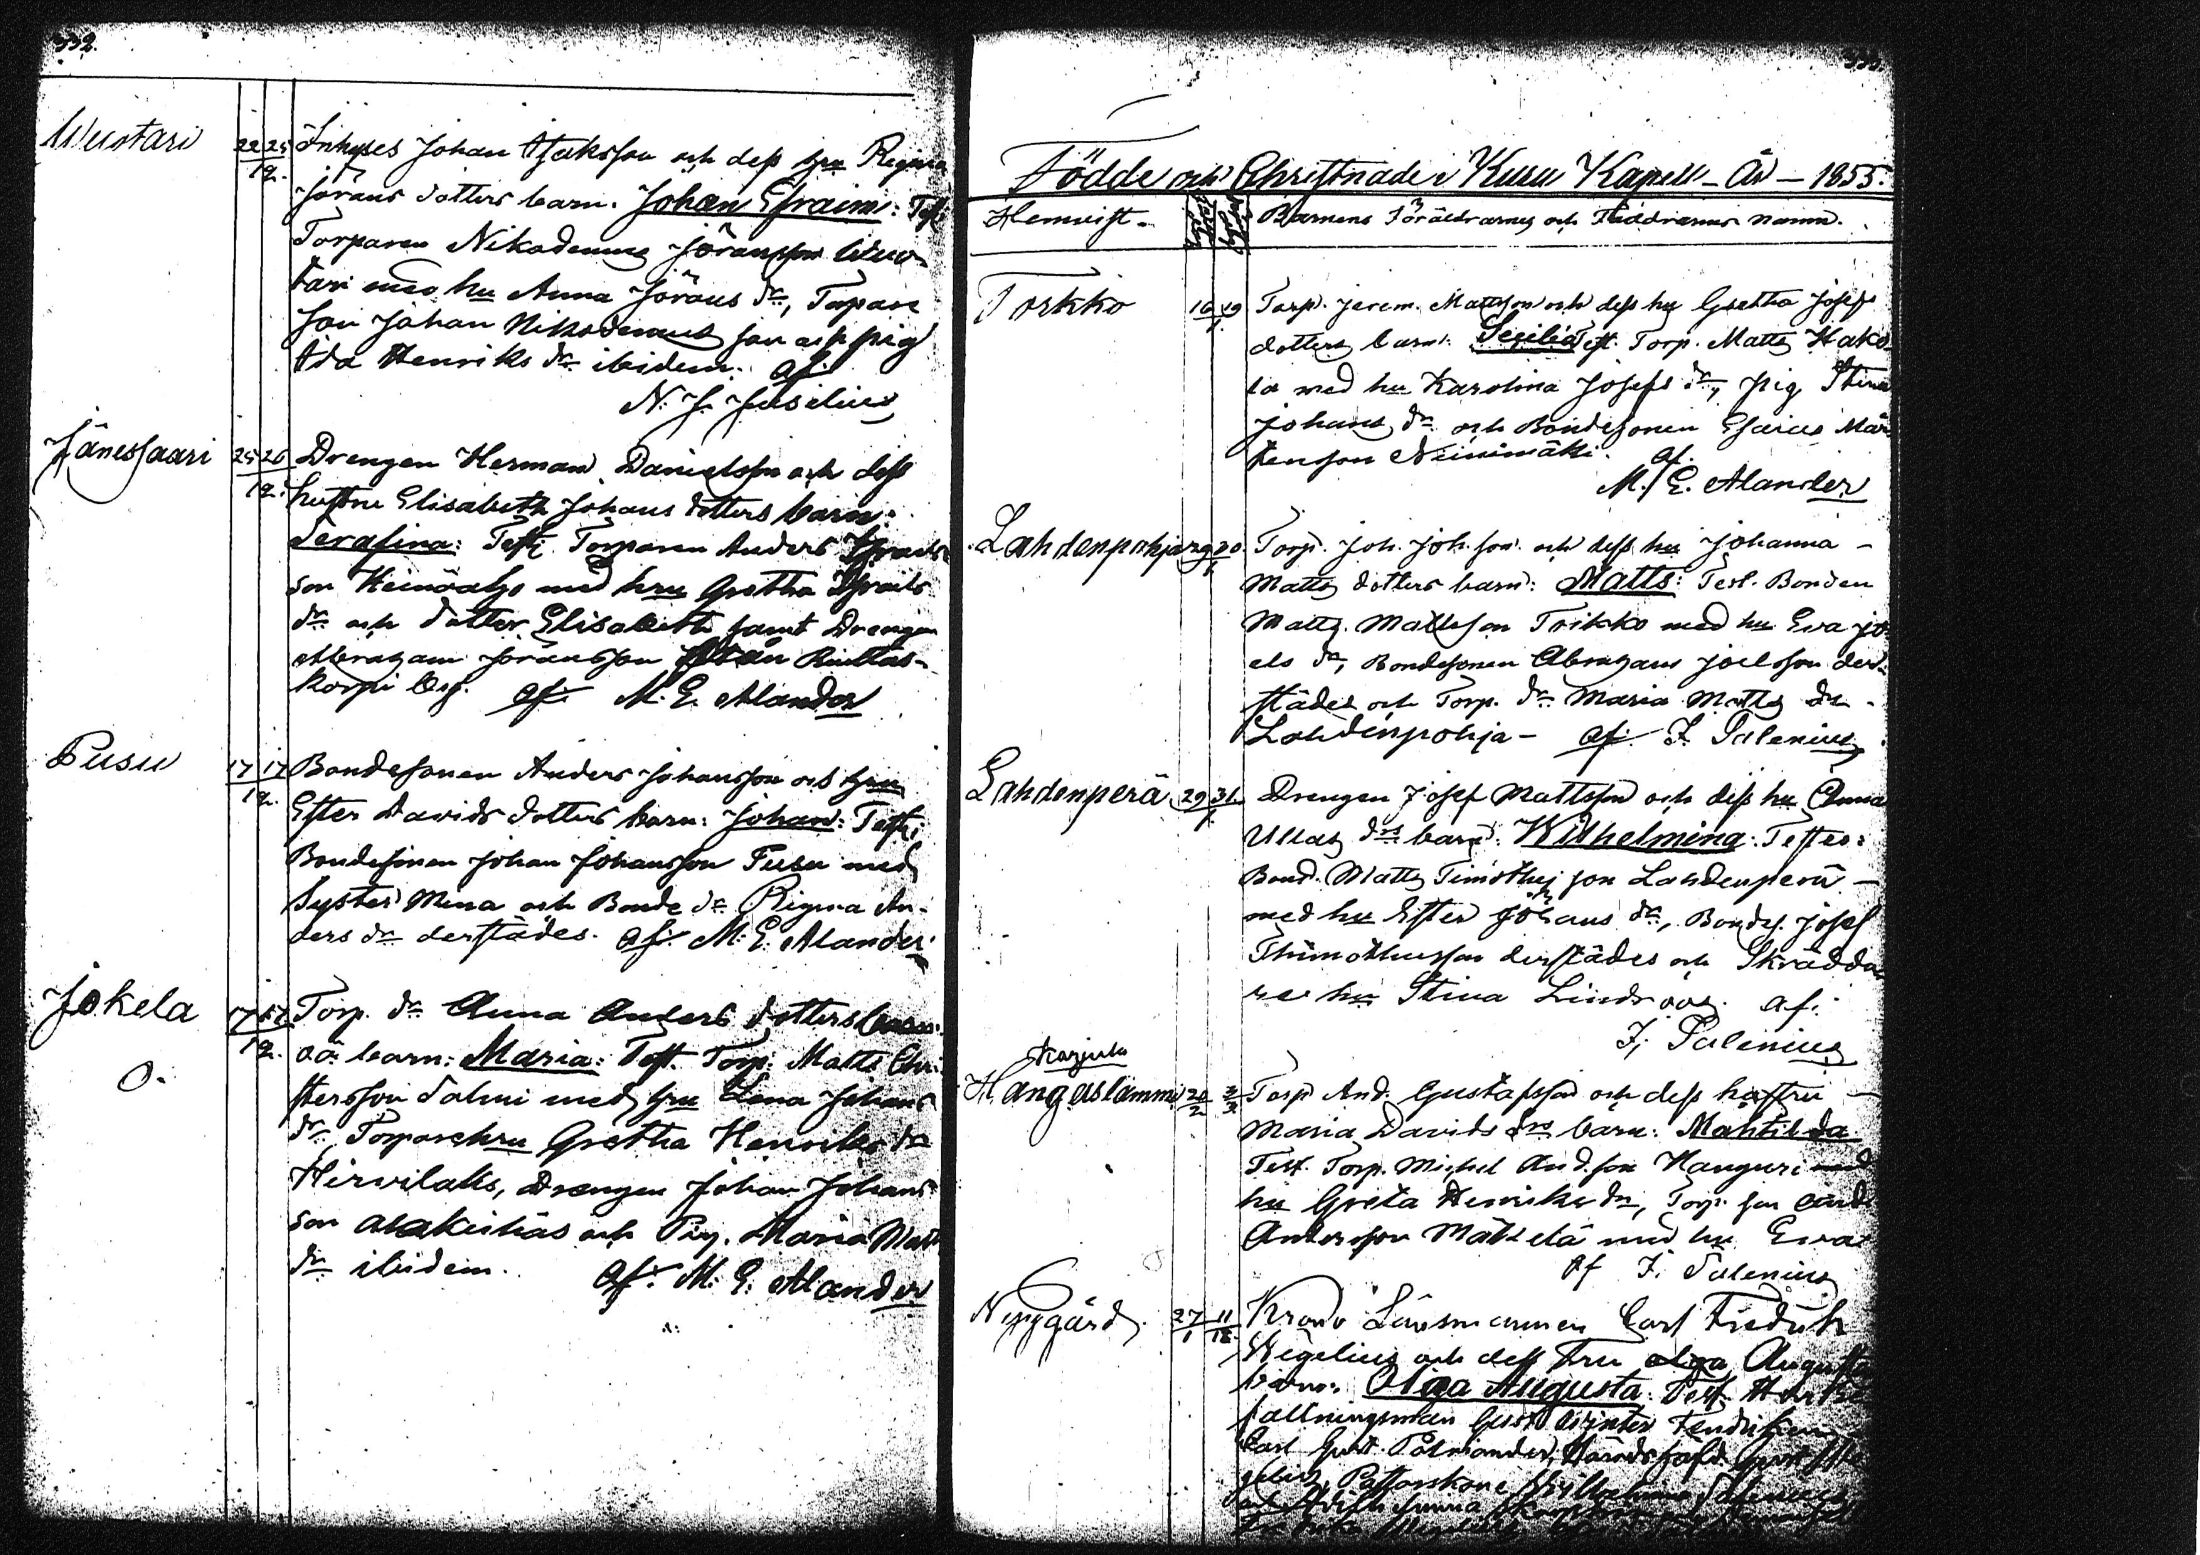 332.
Wuotari 22 25 Inhyses Johan Isaksson och dess hru Regina
12. Jörans dotters barn. Johan Efraim: Test:
Torparen Nikodemus Jöransson Wuo-
tari med hu Anna Jörans dr, Torpare
son Johan Nikodemus son och pig
Ida Henriks dr ibidem. af.
N. J. Juselius
Jänessaari 25 26 Drengen Herman Danielsson och dess
12. hustru Elisabeth Johans dotters barn:
Serafina: Test: Torparen Anders Israels
son Heinöaho med hru Gretha Israels
dr och dotter Elisabeth samt Drengen
Abraham Jöransson
korpi af. M. E. Alander
Pusu 17 17 Bondesonen Anders Johansson och hru
12. Ester Davids dotters barn: Johan: Test:
Bondesonen Johan Johansson Pusu med
Syster Mina och Bonde dr Regina An-
ders dr derstädes. af. M: E. Alander
Jokela 17 17 Torp. dr Anna Anders dotters
12. oä barn: Maria: Test. Torp: Matts Chri
O. stersson Salmi med hru Lena Johans
dr Torparehru Gretha Henriks dr
Hirvilaks, Drengen Johan Johans
son och Pig. Maria Matts
dr ibidem. af. M: E: Alander
333.
Födde och Christnade i Kuru Kapell - År - 1855.
Hemvist. Barnens Föräldrarnes och Faddrarnes namn.
Torkko 16 19 Torp. Jerem. Mattson och dess hu Gretha Josefs
1 dotters barn: Secilia Test. Torp. Matts Hako
la med hu Karolina Josefs dr, pig Stina
Johans dr och Bondesonen Esaias Mår
tenson Niinimäki. af.
M. E. Alander
Lahdenpohja 29 30 Torp. Joh. Joh. son och dess hu Johanna -
1 Matts dotters barn: Matts: Test. Bonden
Matts. Mattsson Torkko med hu Eva Jo
els dr, Bondesonen Abraham Joelsson der-
städes och Torp. dr Maria Matts dr -
Lahdenpohja - af. F. Salenius
Lahdenperä 29 31 Drengen Josef Mattsson och dess hu Anna
1 Ullas drs barn: Wilhelmina: Testes:
Bond. Matts Timothej son Lahdenperä -
med hu Ester Johans dr, Bondes. Josef
Thimotheusson derstädes och Skrädda
re hu Stina Lindroos. af:
F. Salenius
Karjula
Hangaslammi 20 3 Torp. And. Gustafsson och dess hustru -
2 3 Maria Davids drs barn: Mahtilda
Test. Torp. Michel And. son Hanguri med
hu Greta Henriks dr, Torp. son And.
Andersson Mäkelä med hu Eva
af F. Salenius
Nygård. 27 11 Krono Länsmannen Carl Fredrik
1 12. Wegelius och dess fru Olga Augusta
barn: Olga Augusta. Test.
fallningsman Gust. Winter
Carl Gust. Palmander, Häradshöfd. Gust. We
gelius, Pastorskone Wilhelmina Salenius